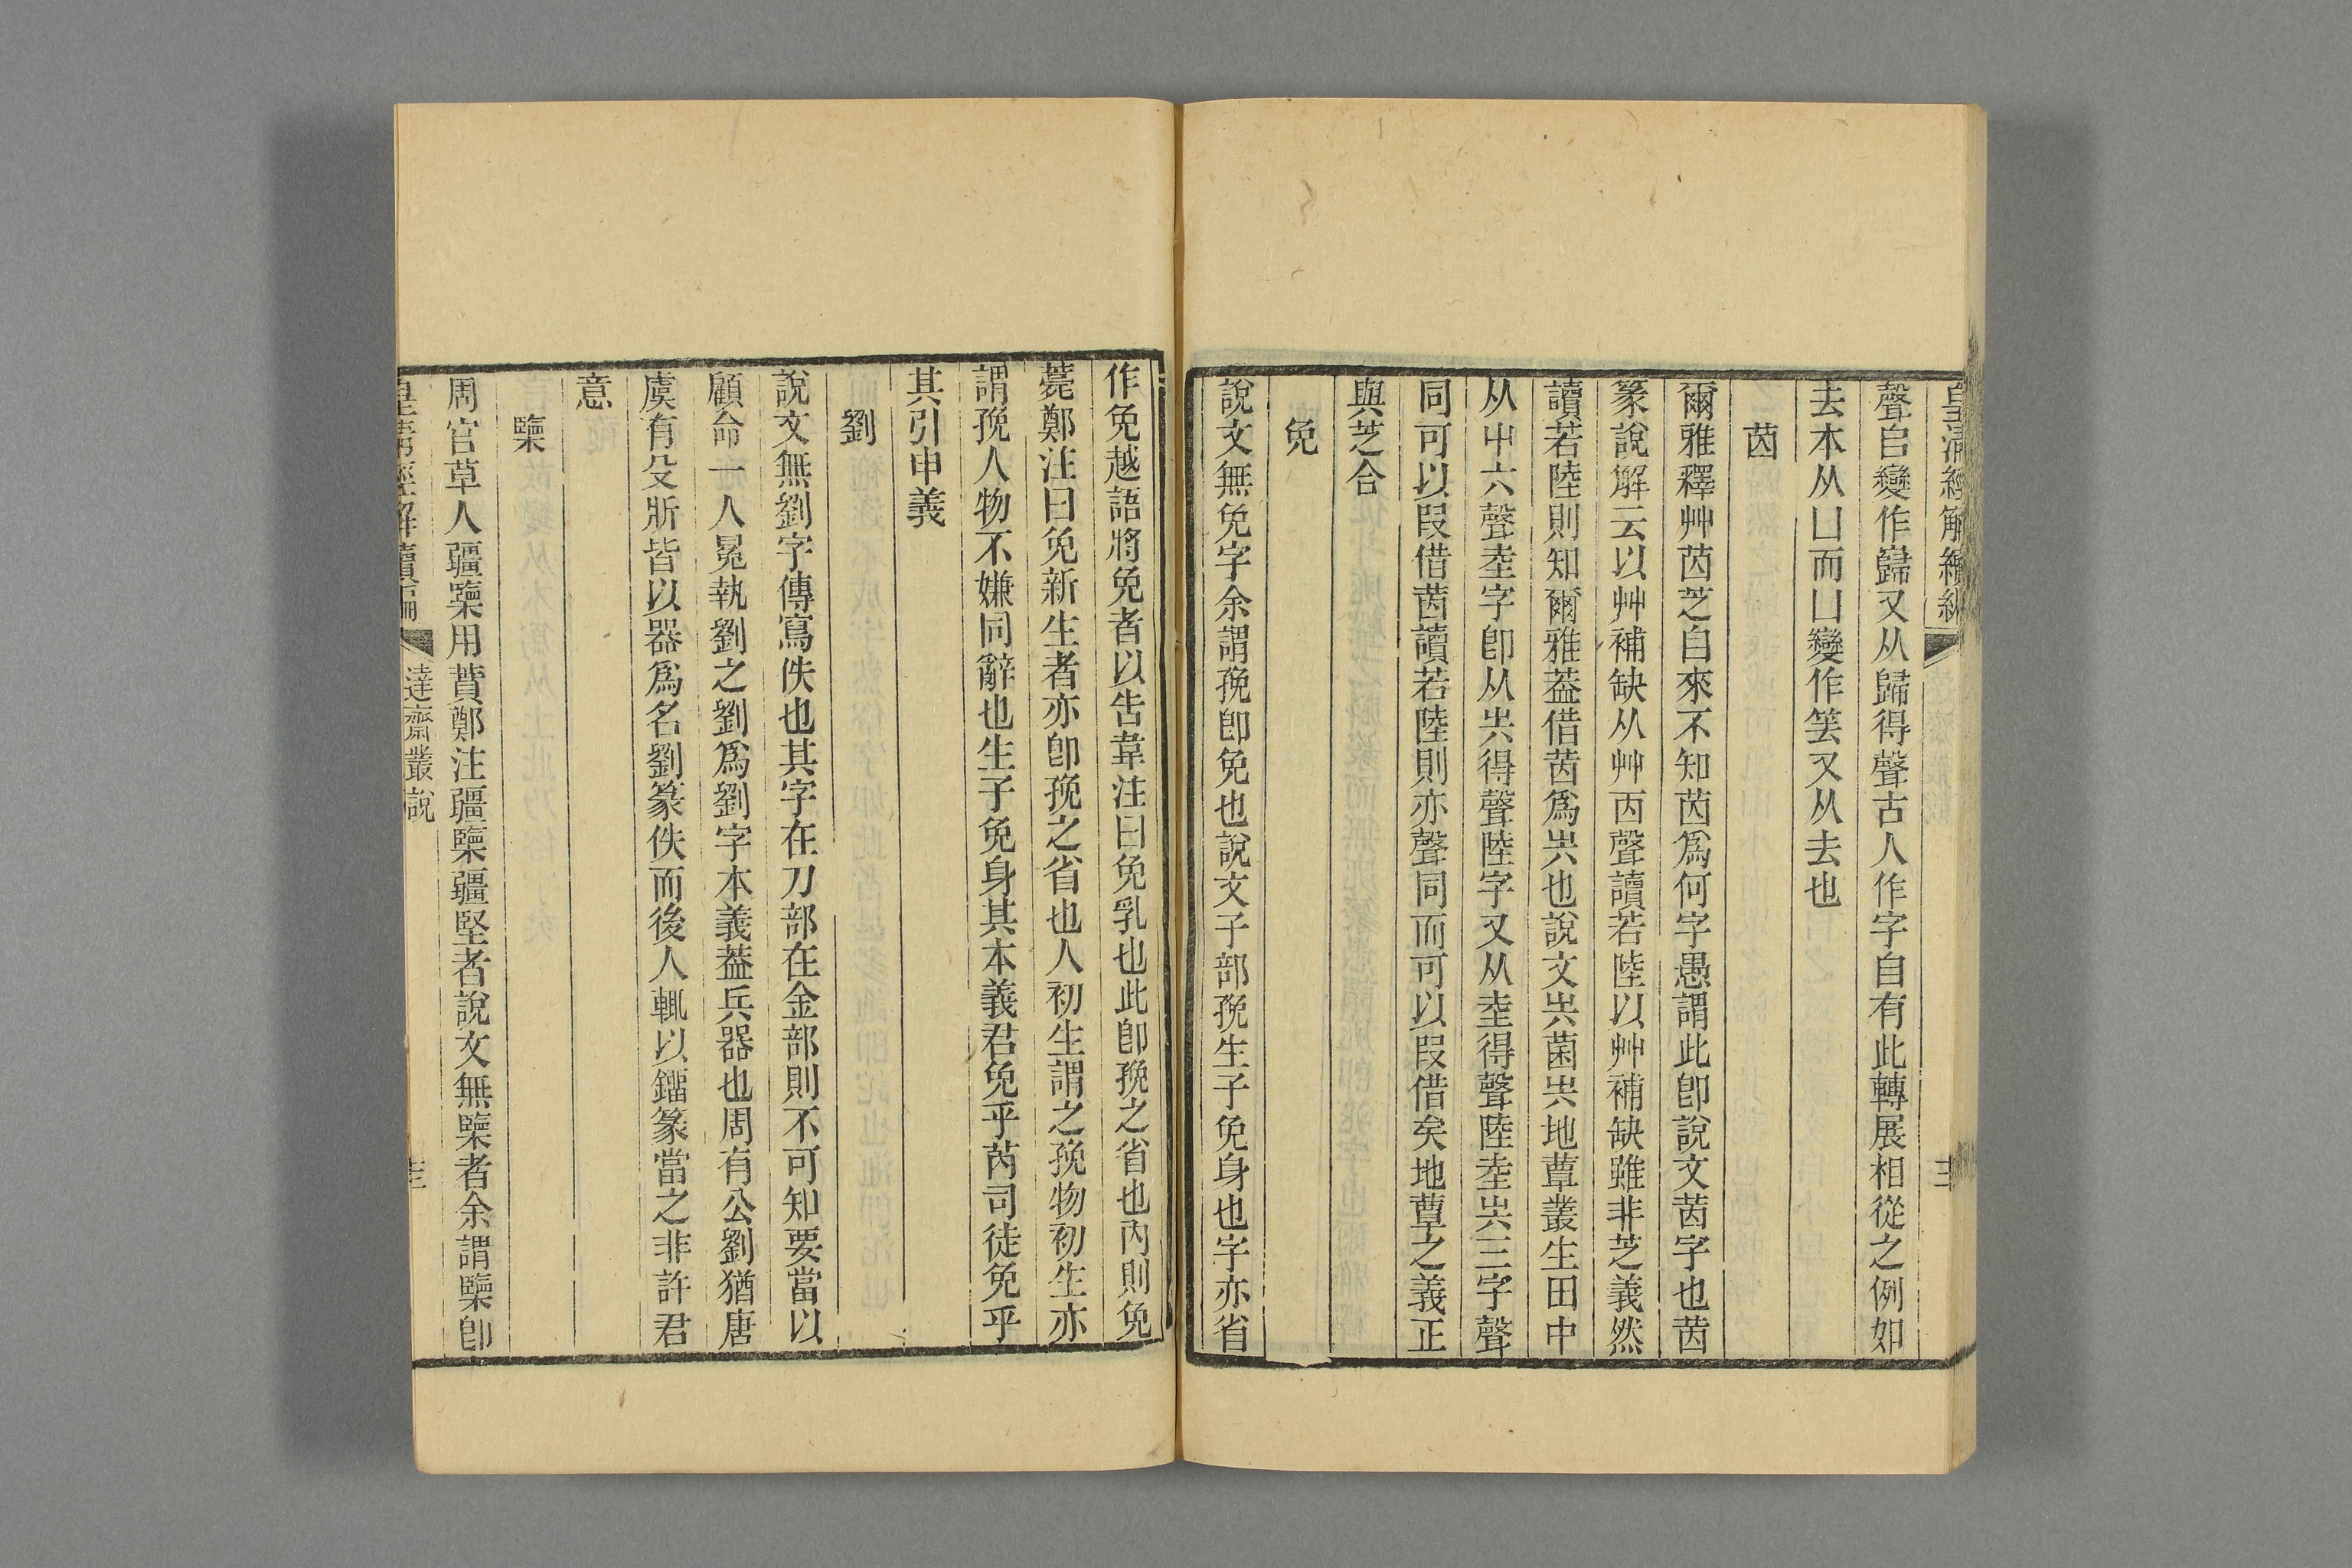 皇清經解續編
聲𠂤變作歸又从歸得聲古人作字自有此轉展相從之例如
去本从凵而凵變作䒦又从去也
苬
爾雅釋艸苬芝自來不知苬爲何字愚謂此卽說文茵字也苬
篆說解云以艸補缺从艸㐁聲讀若陸以艸補缺雖非芝義然
讀若陸則知爾雅葢借茵爲𡴆也說文𡴆菌𡴆地蕈叢生田中
从屮六聲坴字卽从𡴆得聲陸字又从坴得聲陸坴𡴆三字聲
同可以叚借茵讀若陸則亦聲同而可以叚借矣地蕈之義正
與芝合
免
說文無免字余謂㝃卽免也說文子部㝃生子免身也字亦省
作免越語將免者以告韋注曰免乳也此卽㝃之省也內則免
薧鄭注曰免新生者亦卽㝃之省也人初生謂之㝃物初生亦
謂㝃人物不嫌同辭也生子免身其本義君免乎芮司徒免乎
其引申義
劉
說文無劉字傳寫佚也其字在刀部在金部則不可知要當以
顧命一人冕執劉之劉爲劉字本義葢兵器也周有公劉猶唐
虞有殳斨皆以器爲名劉篆佚而後人輒以鐂篆當之非許君
意
㯺
周官草人疆㯺用蕡鄭注疆㯺疆堅者說文無㯺者余謂㯺卽
皇清經解續編 達齋叢說 𠦃